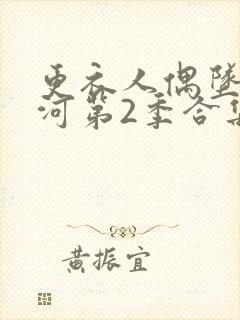 更衣人偶墜
河第2季合集
黄振宜